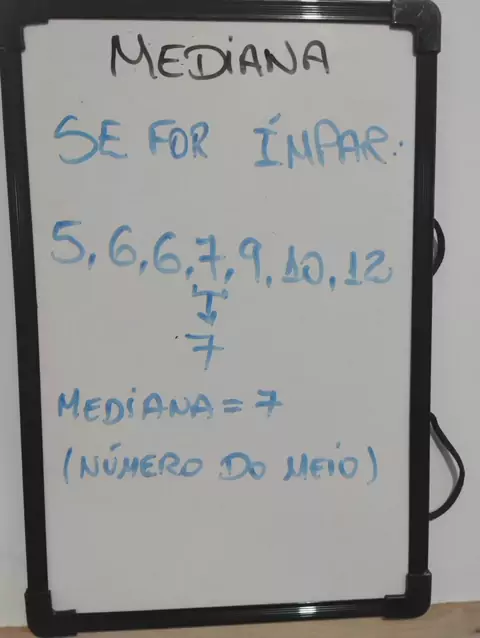 MEDIANA
SE FOR ÍMPAR.
5, 6, 6, 7, 9, 10, 12
7
MEDIANA = 7
(NÚMERO DO MEIO)